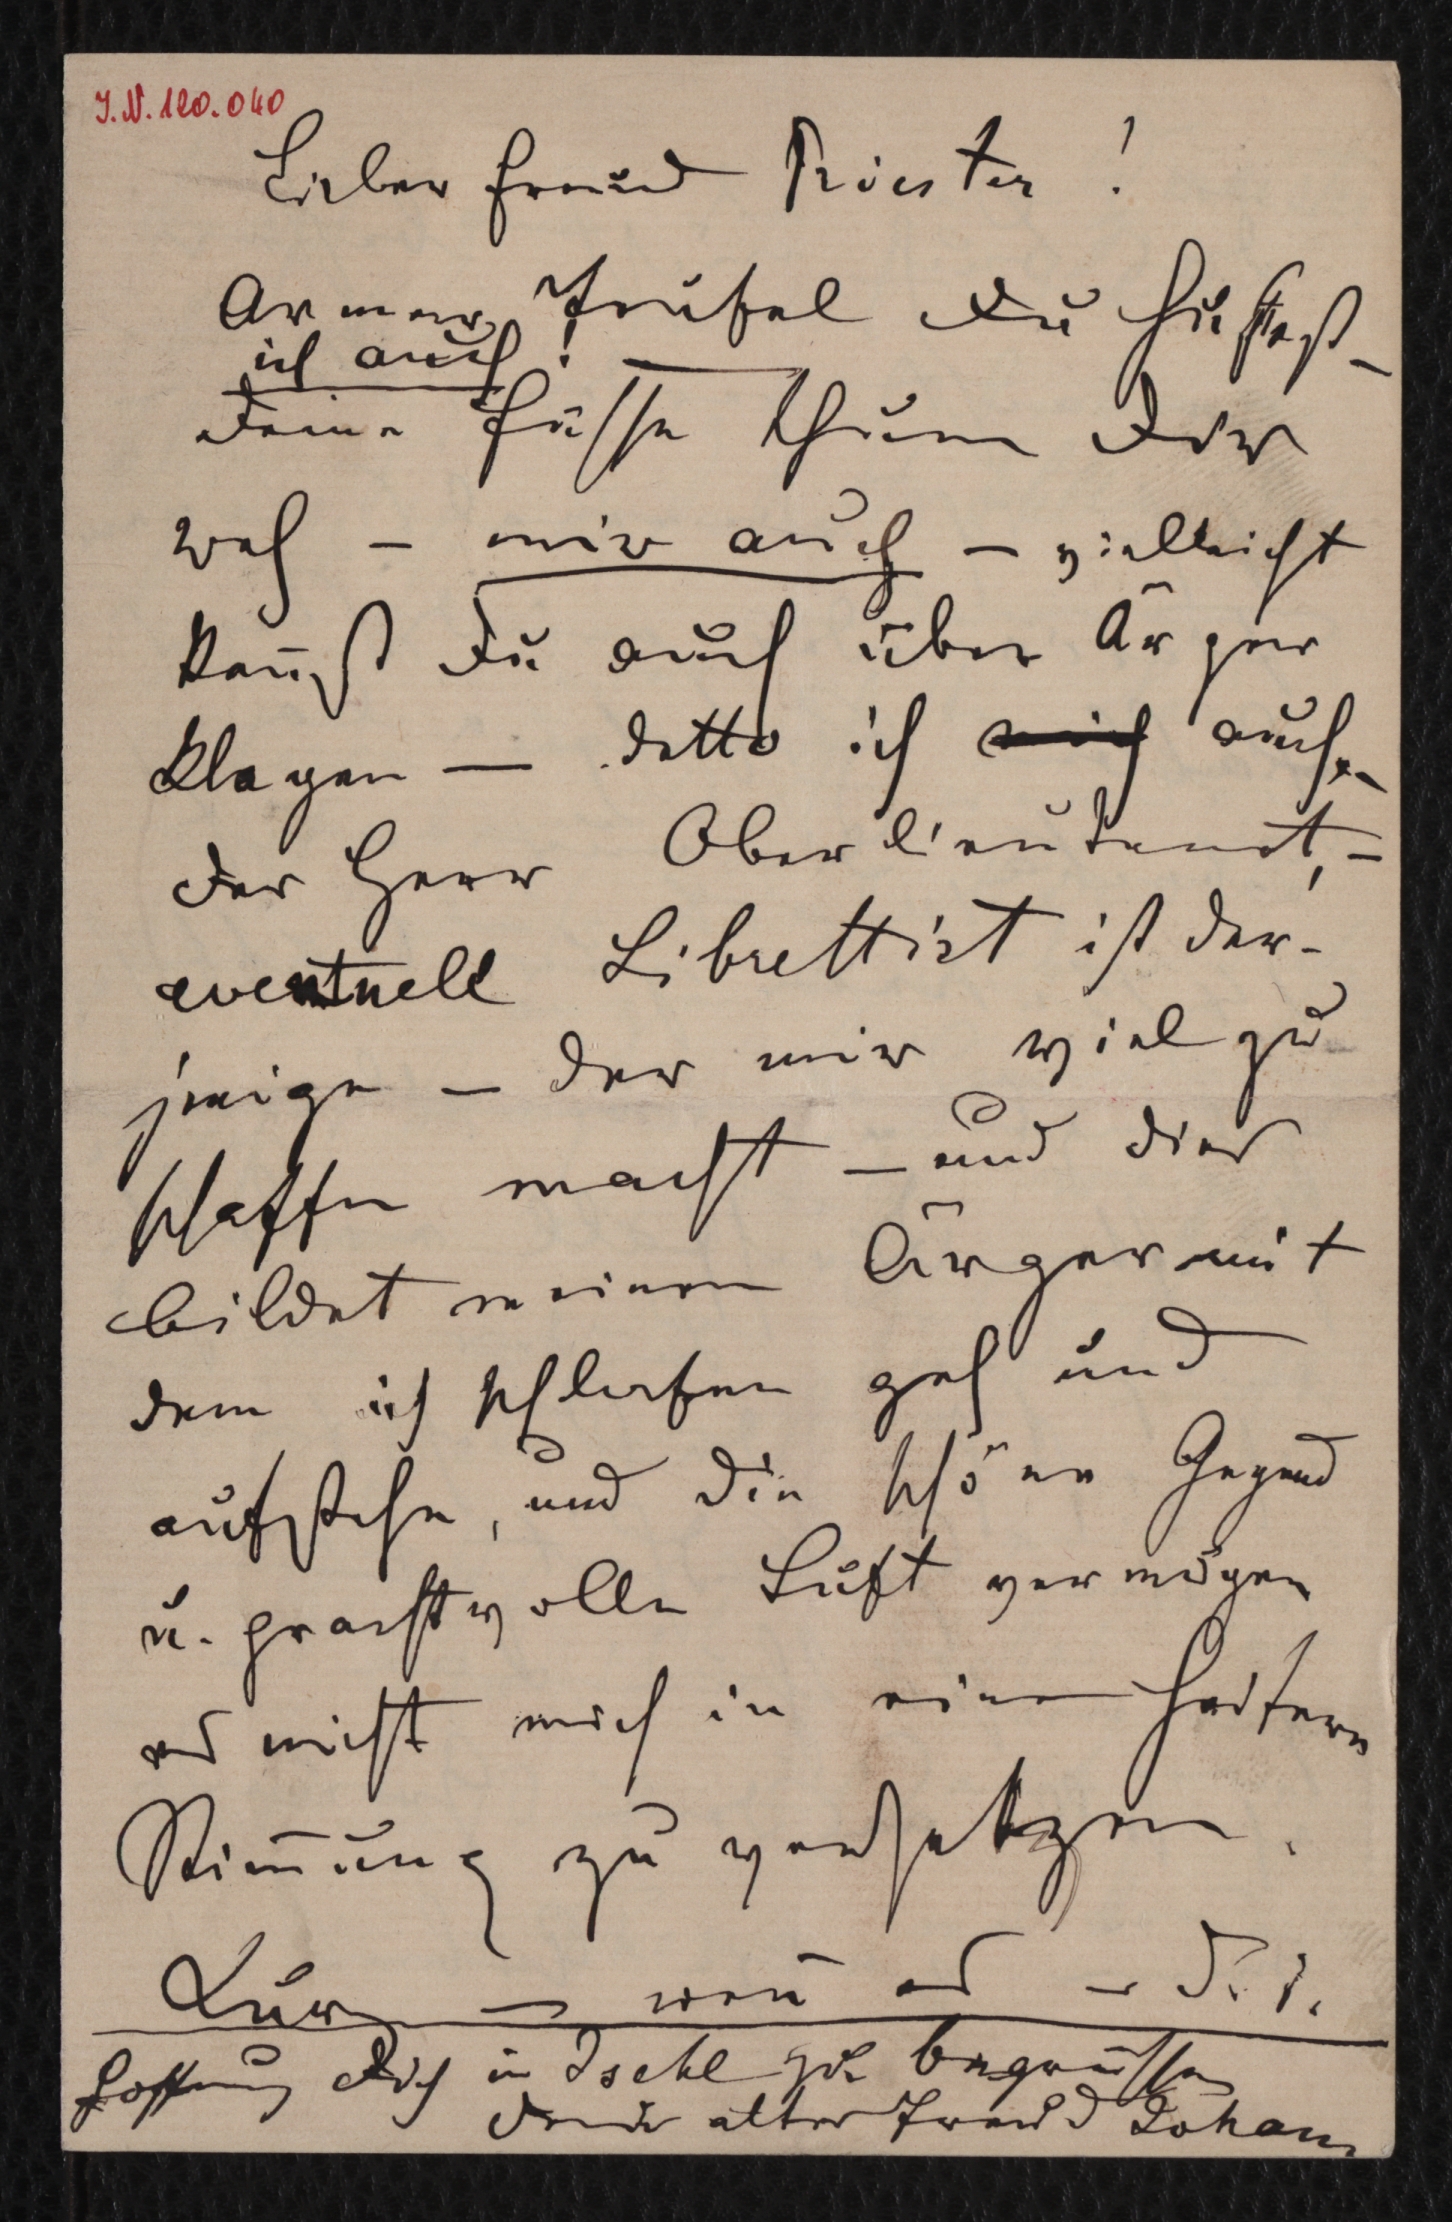 J.N. 120.040
Lieber Freund Priester!
Armer Teufel Du hustest –
ich auch! —
Deine Füsse thuen Dir
weh – mir auch – vielleicht
kannst Du auch über Ärger
klagen — detto ich mich auch. –
Der Herr Oberlieutenant, –
eventuell Librettist ist der-
jenige – der mir viel zu
schaffen macht – und dies
bildet meinen Ärger mit
dem ich schlafen geh und
aufstehe, und die schöne Gegend
u. prachtvolle Luft vermögen
es nicht mich in eine heitere
Stimmung zu versetzen.
Kurz – wenn es –
Hoffung Dich in Ischl zu begrüssen
Dein alter Freund Johann